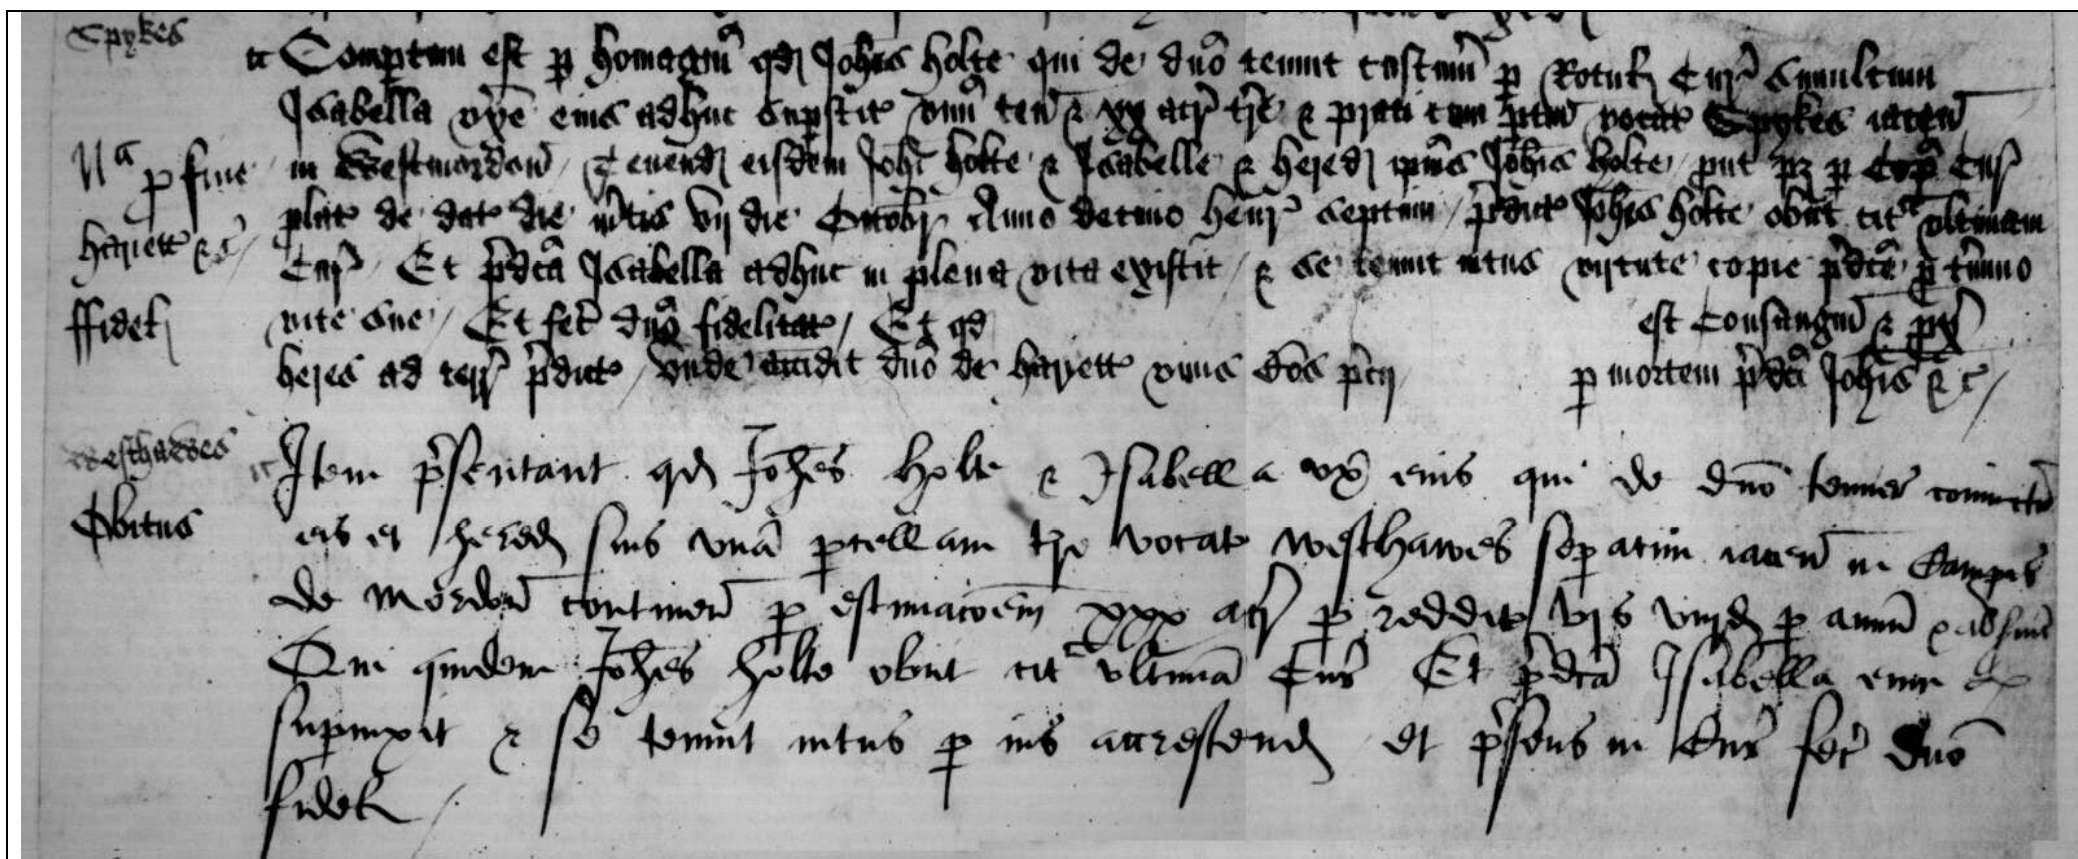 Spykes
Compertum est p homagiu qd Johes Holte qui de dno tenuit p Rotul Cur simulcum
Isabella uxe eius adhuc supstite unu ten & xx acr tre & prati cum ptin vocat Spykes iacen
Na p fine in Westmordon / Tenend eisdem Johi Holte & Isabelle & hered ipius Johis Holte / put p3 p Cop Cur
plat de dat die vij die Octobr Anno decimo Henr septimi / pdict Johes Holte obiit cit ultimam
hariett &c / Cur / Et pdca Isabella adhuc in plena vita existit / & se tenuit intus virtute copie pdce p tmino
ffidel vite sue / Et fec dno fidelitat / Et qd est Consanguin &
heres ad terr pdict / unde accidit dno de hariett unus bos pcij p mortem pdci Johis & c /
Westhawes Item psentant qd Johes Holte & Isabella ux eius qui de dno tenuer coniucti
Obitus eis et hered suis una pcellam tre vocat Westhawes sepatim iacen in Campis
de Mordon continen p estimacoem xxx acr p reddit vjs viijd p annu
Qui quidem Johes Holte obiit cit ultima Cur Et pdca Isabella eum
supvixit & se tenuit intus p ius accrescend et psens in Cur fec dno
fidel /